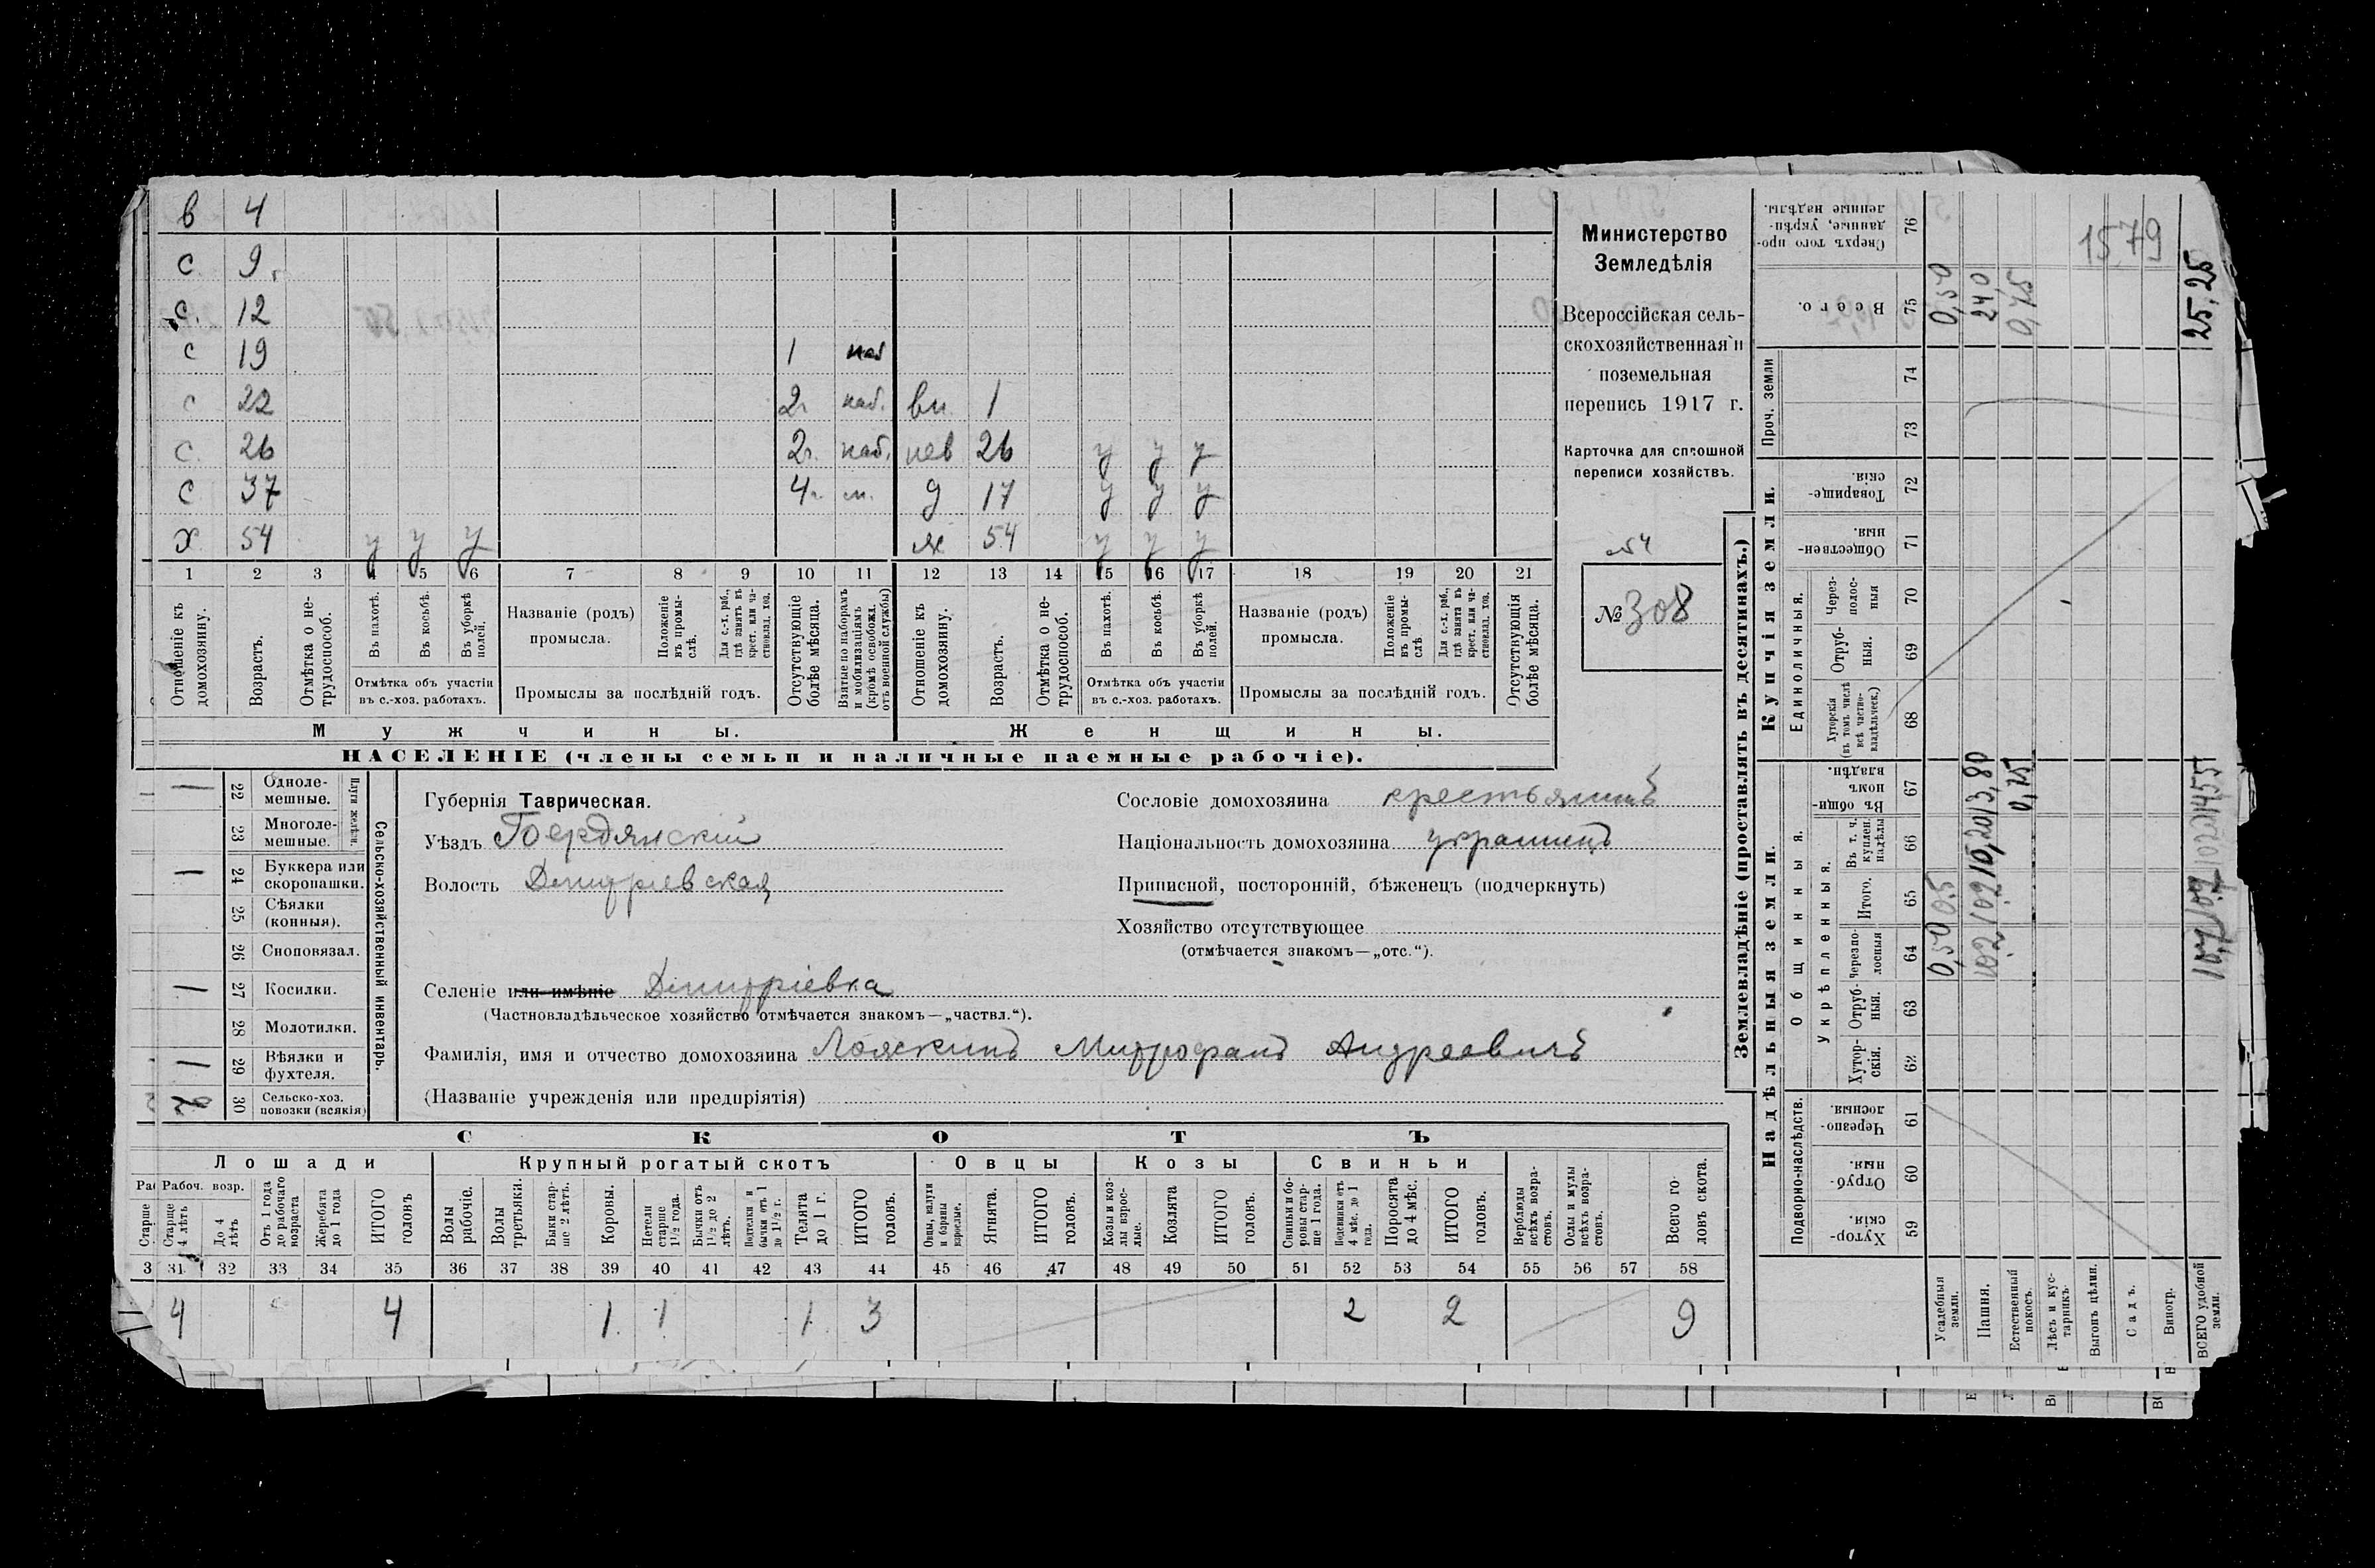 в 4
с 9
с. 12
с 19 1 наб
с 22 2г. наб. вн 1
с. 26 2г. наб. нев 26 у у у
с 37 4г. м. д 17 у у у
х 54 у у у ж 54 у у у
1 2 3 4 5 6 7 8 9 10 11 12 13 14 15 16 17 18 19 20 21
Отношеніе къ домохозяину.
Возрастъ.
Отмѣтка о не-трудоспособ.
Въ пахотѣ.
Въ косьбѣ.
Въ уборкѣ полей.
Отмѣтка объ участіи въ с.-хоз. работахъ.
Названіе (родъ) промысла.
Положеніе въ промы-слѣ.
Для с.-х. раб., гдѣ занятъ въ крест. или ча-стновлад. хоз.
Промыслы за послѣдній годъ.
Отсутствующіе болѣе мѣсяца.
Взятые по наборамъ и мобилизаціямъ (кромѣ освобожд. отъ военной службы)
Отношеніе къ домохозяину.
Возрастъ.
Отмѣтка о не-трудоспособ.
Въ пахотѣ.
Въ косьбѣ.
Въ уборкѣ полей.
Отмѣтка объ участіи въ с.-хоз. работахъ.
Названіе (родъ) промысла.
Положеніе въ промы-слѣ
Для с.-х. раб., гдѣ занята въ крест. или ча-стновлад. хоз.
Промыслы за послѣдній годъ.
Отсутствующія болѣе мѣсяца.
Мужчины.
Женщины.
НАСЕЛЕНІЕ (члены семьи и наличные наемные рабочіе).
Министерство
Земледѣлія
Всероссійская сель-
скохозяйственная и
поземельная
перепись 1917 г.
Карточка для сплошной
переписи хозяйствъ.
№ 308
22 Одноле-мешные.
23 Многоле-мешные.
24 Буккера или скоропашки.
25 Сѣялки (конныя).
26 Сноповязал.
27 Косилки.
28 Молотилки.
29 Вѣялки и фухтеля.
30 Сельско-хоз. повозки (всякія)
Сельско-хозяйственный инвентарь.
Губернія Таврическая.
Уѣздъ Бердянскій
Волость Дмитріевская
Селеніе или имѣніе Дмитріевка
(Частновладѣльческое хозяйство отмѣчается знакомъ—„частвл.“).
Фамилія, имя и отчество домохозяина Лояскинъ Митрофанъ Андреевичъ
(Названіе учрежденія или предпріятія)
Сословіе домохозяина крестьянинъ
Національность домохозяина украинецъ
Приписной, посторонній, бѣженецъ (подчеркнуть)
Хозяйство отсутствующее
(отмѣчается знакомъ—„отс.“).
СКОТЪ
Лошади
Крупный рогатый скотъ
Овцы
Козы
Свиньи
Рабоч. возр.
Старше 4 лѣтъ
До 4 лѣтъ
Отъ 1 года до рабочаго возраста
Жеребята до 1 года
ИТОГО головъ
Волы рабочіе.
Волы третьяки.
Быки стар-ше 2 лѣтъ.
Коровы.
Нетели старше 1½ года.
Бычки отъ 1½ до 2 лѣтъ.
Подтелки и бычки отъ 1 до 1½ г.
Телята до 1 г.
ИТОГО головъ.
Овцы, валухи и бараны взрослые.
Ягнята.
ИТОГО головъ.
Козы и коз-лы взрос-лые.
Козлята
ИТОГО головъ.
Свиньи и бо-ровы стар-ше 1 года.
Подсвинки отъ 4 мѣс. до 1 года.
Поросята до 4 мѣс.
ИТОГО головъ.
Верблюды всѣхъ возра-стовъ.
Ослы и мулы всѣхъ возра-стовъ.
Всего го-ловъ скота.
31 32 33 34 35 36 37 38 39 40 41 42 43 44 45 46 47 48 49 50 51 52 53 54 55 56 57 58
4 4 1 1 1 3 2 2 9
Землевладѣніе (проставлять въ десятинахъ.)
Надѣльныя земли.
Купчія земли.
Проч. земли
Подворно-наслѣдств.
Общинныя.
Укрѣпленныя.
Единоличныя.
Хутор-скія. 59
Отруб-ныя. 60
Черезпо-лосныя. 61
Хутор-скія. 62
Отруб-ныя. 63
Черезпо-лосныя 64
Итого. 65
Въ т. ч. куплен. надѣлы 66
Въ общи-номъ владѣн. 67
Хуторскія (въ томъ числѣ всѣ частно-владѣльческ.) 68
Отруб-ныя. 69
Через-полос-ныя 70
Обществен-ныя. 71
Товарище-скія. 72
73
74
Всего. 75
Сверхъ того про-данные, укрѣп-ленные надѣлы. 76
Усадебныя земли. 0,50 0,5 0,50
Пашня. 10,2 10,2 10,20 13,80 240
Естественный покосъ. 0,75
Лѣсъ и кус-тарникъ.
Выгонъ цѣлин.
Садъ.
Виногр.
ВСЕГО удобной земли. 25,25
1579